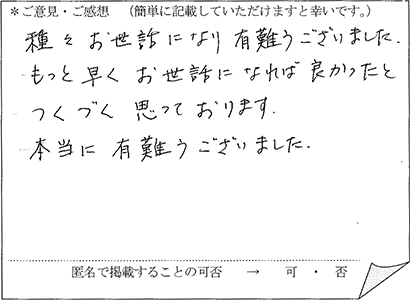 ＊ご意見・ご感想　（簡単に記載していただけますと幸いです。）
種々 お世話になり 有難うございました.
もっと早く お世話に なれば 良かったと
つくづく 思って おります.
本当に 有難うございました.
匿名で掲載することの可否　→　可　・　否